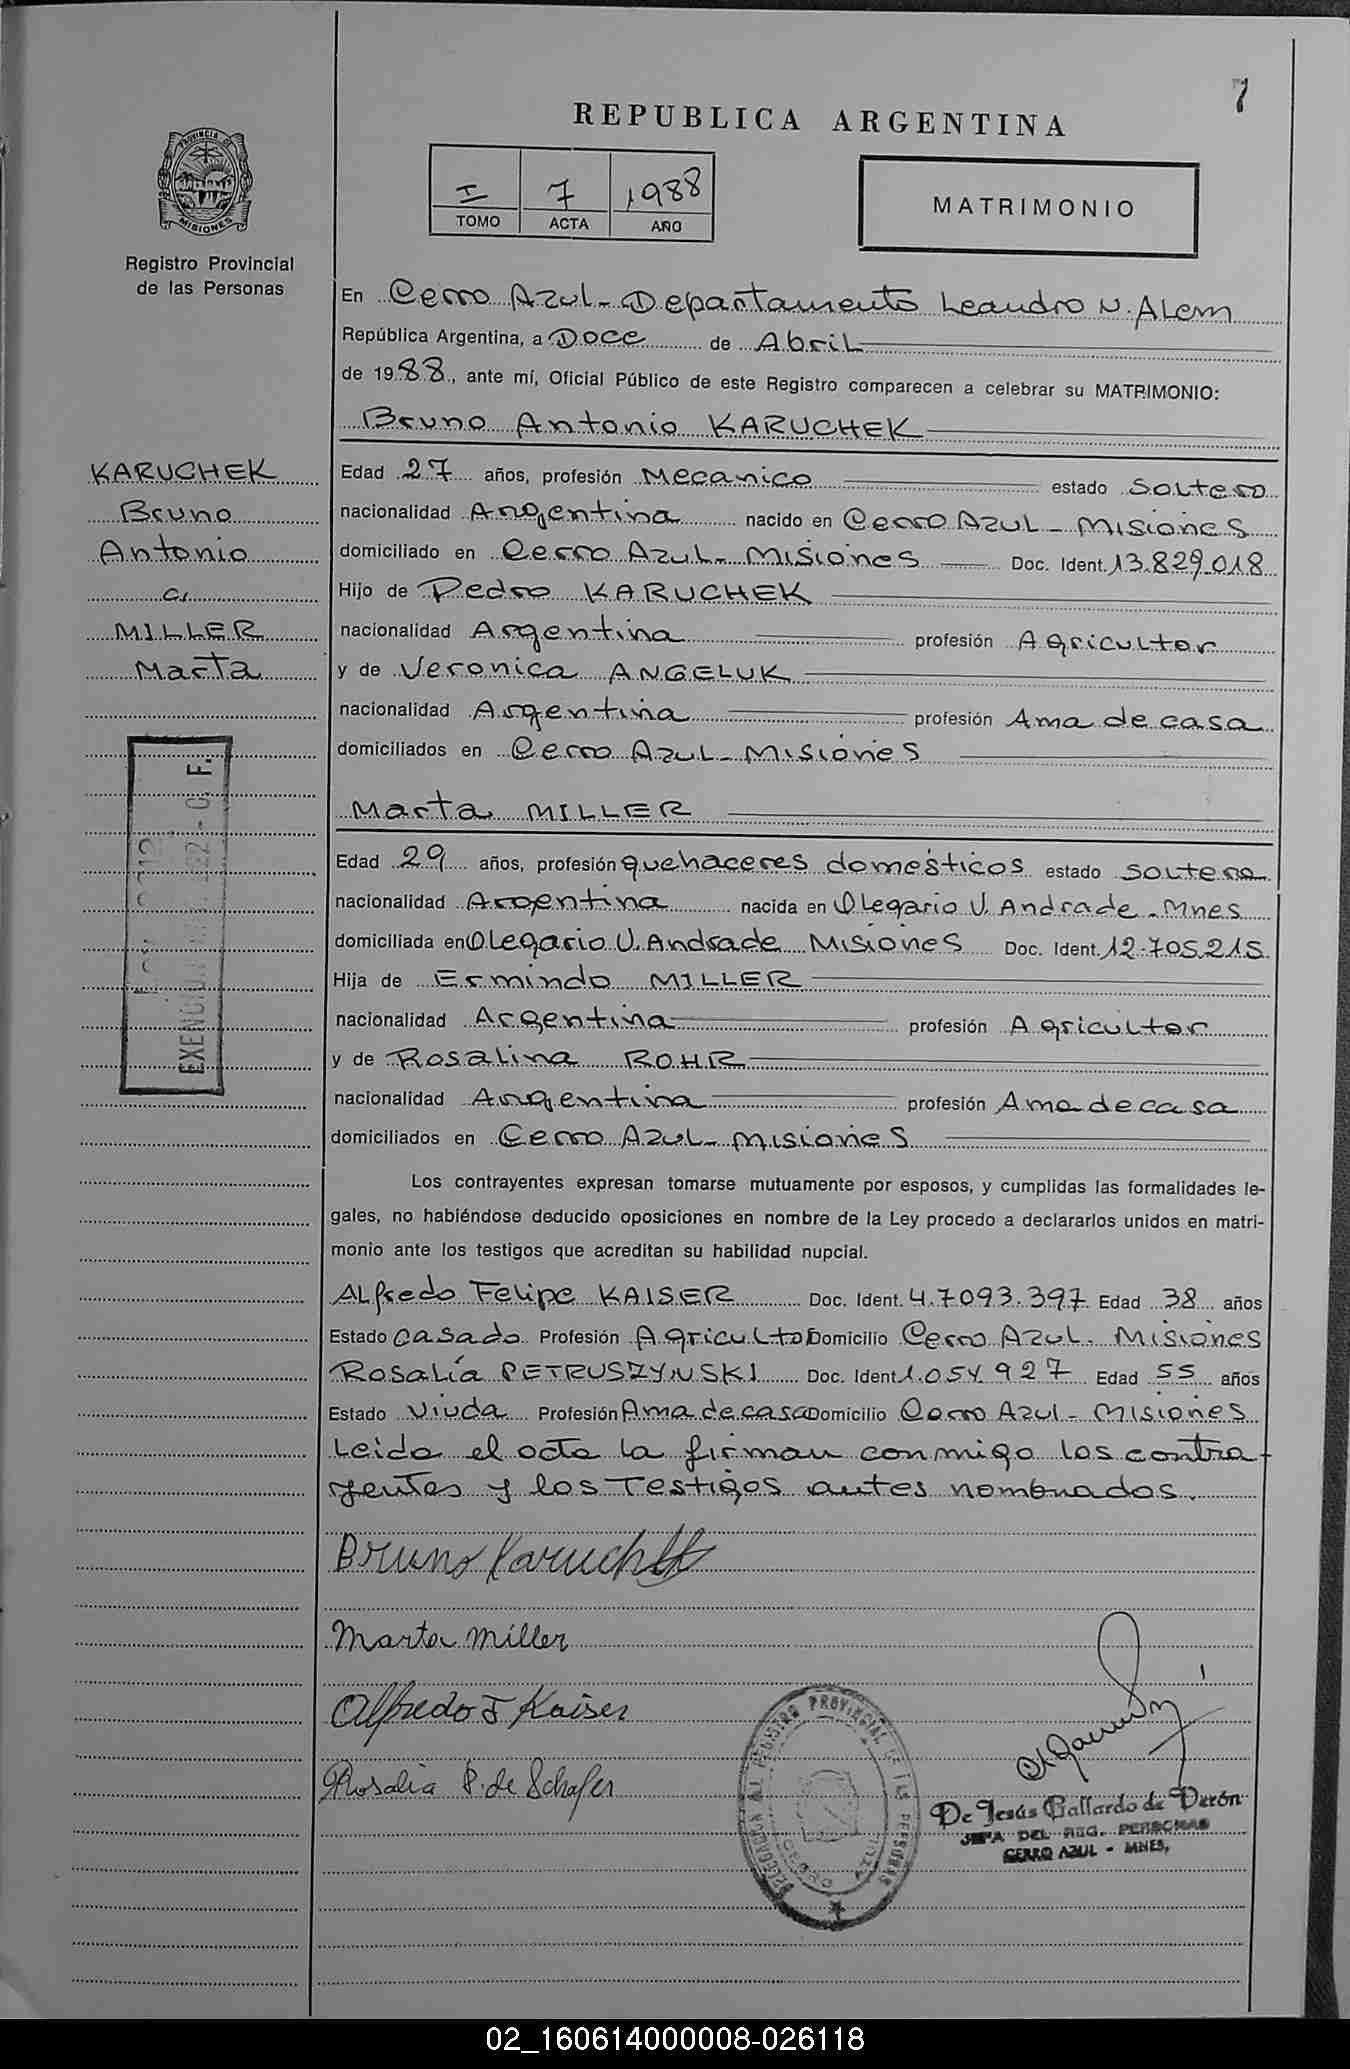 7
REPUBLICA ARGENTINA
I 7 1988
TOMO ACTA AÑO
MATRIMONIO
PROVINCIA DE
MISIONES
Registro Provincial
de las Personas
En Cerro Azul - Departamento Leandro N. Alem
República Argentina, a Doce de Abril
de 1988, ante mí, Oficial Público de este Registro comparecen a celebrar su MATRIMONIO:
Bruno Antonio KARUCHEK
KARUCHEK
Bruno
Antonio
c/
MILLER
Marta
Edad 27 años, profesión Mecanico estado Soltero
nacionalidad Argentina nacido en Cerro Azul - Misiones
domiciliado en Cerro Azul - Misiones Doc. Ident. 13.829.018
Hijo de Pedro KARUCHEK
nacionalidad Argentina profesión Agricultor
y de Veronica ANGELUK
nacionalidad Argentina profesión Ama de casa
domiciliados en Cerro Azul - Misiones
Marta MILLER
Edad 29 años, profesión quehaceres domésticos estado Soltera
nacionalidad Argentina nacida en Olegario V. Andrade - Mnes
domiciliada en Olegario V. Andrade Misiones Doc. Ident. 12.705.215
Hija de Ermindo MILLER
nacionalidad Argentina profesión Agricultor
y de Rosalina ROHR
nacionalidad Argentina profesión Ama de casa
domiciliados en Cerro Azul - Misiones
EXENCION
F.
Los contrayentes expresan tomarse mutuamente por esposos, y cumplidas las formalidades le-
gales, no habiéndose deducido oposiciones en nombre de la Ley procedo a declararlos unidos en matri-
monio ante los testigos que acreditan su habilidad nupcial.
Alfredo Felipe KAISER Doc. Ident. 4.7093.397 Edad 38 años
Estado Casado Profesión Agricultor Domicilio Cerro Azul - Misiones
Rosalía PETRUSZYNSKI Doc. Ident 1.054.927 Edad 55 años
Estado Viuda Profesión Ama de casa Domicilio Cerro Azul - Misiones
Leida el acta la firman conmigo los contra
yentes y los Testigos antes nombrados.
Bruno Karuchek
Marta Miller
Alfredo F Kaiser
Rosalia P. de Schafer
DELEGACION DEL REGISTRO PROVINCIAL DE LAS PERSONAS
CERRO AZUL
De Jesús Gallardo de Verón
JEFA DEL REG. PERSONAS
CERRO AZUL - MNES,
02_160614000008-026118